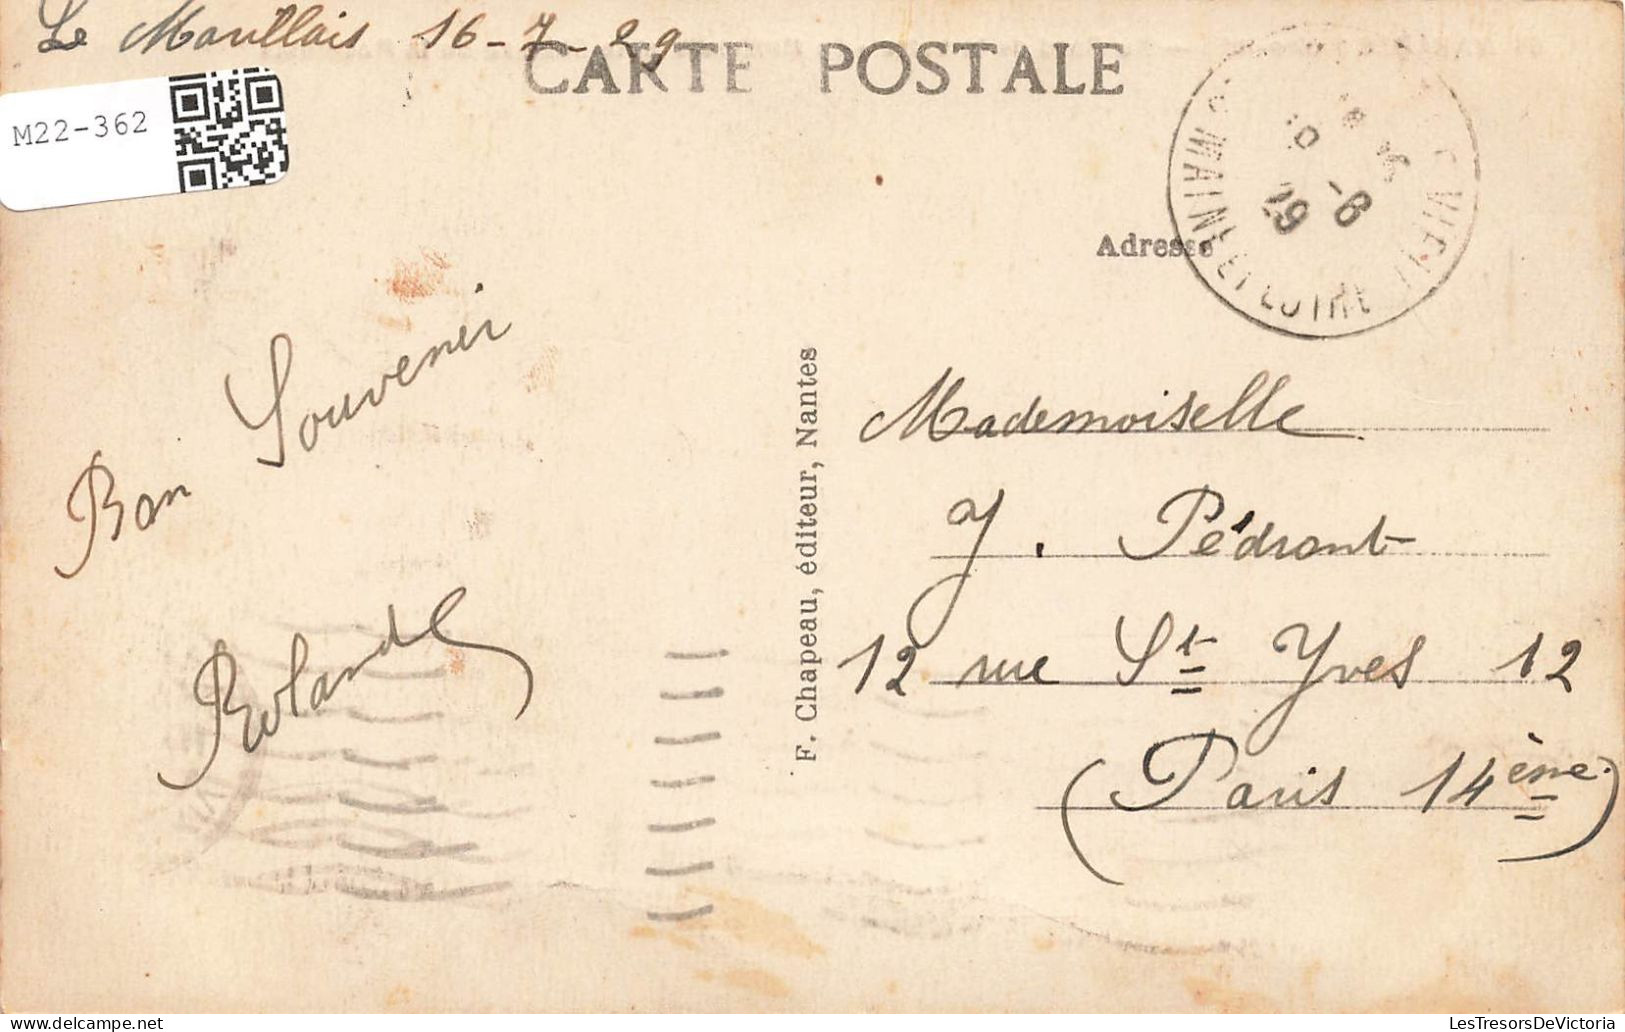 Le Marillais 16-7-29
CARTE POSTALE
M22-362
Adresse
MAINE ET LOIRE
18 -8
29
Bon Souvenir
Rolande
F. Chapeau, éditeur, Nantes
Mademoiselle
J. Pédront
12 rue St Yves 12
(Paris 14ème)
LesTresorsDeVictoria
delcampe.net